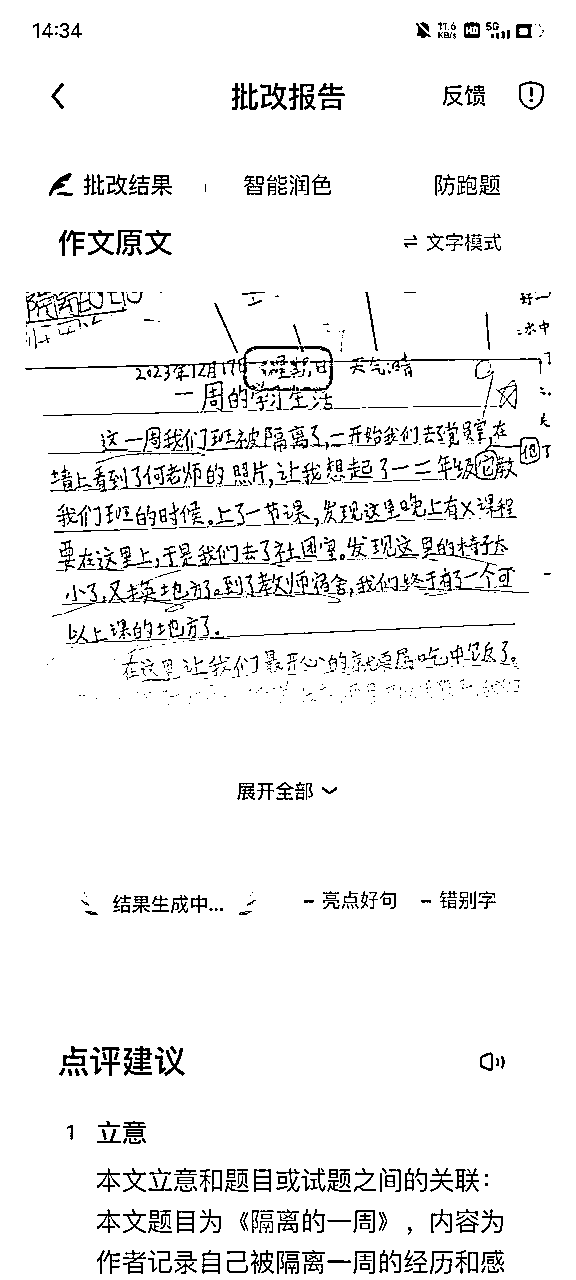 14:34
77.6 KB/s HD 5G
批改报告
反馈
批改结果
智能润色
防跑题
作文原文
文字模式
2023年12月17日 星期日 天气晴
一周的学习生活
这一周我们班被隔离了,一开始我们去党员室,在
墙上看到了何老师的照片,让我想起了一二年级它教
我们班的时候。上了一节课,发现这里晚上有X课程
要在这里上,于是我们去了社团室。发现这里的椅子太
小了,又换地方了。到了教师宿舍,我们终于有了一个可
以上课的地方了。
在这里让我们最开心的就是吃中饭了。
展开全部
结果生成中...
亮点好句
错别字
点评建议
1 立意
本文立意和题目或试题之间的关联：
本文题目为《隔离的一周》，内容为
作者记录自己被隔离一周的经历和感